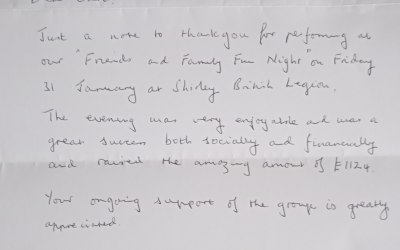 Just a note to thank you for performing at
our "Friends and Family Fun Night" on Friday
31 January at Shirley British Legion.
The evening was very enjoyable and was a
great success both socially and financially
and raised the amazing amount of £1124.
Your ongoing support of the group is greatly
appreciated.